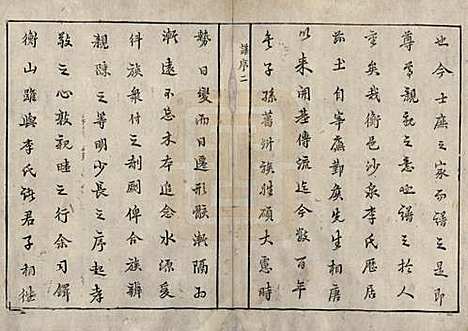 也今士庶之家而譜之是即
尊尊親親之意也譜之於人
重矣我衡邑沙泉李氏歷居
茲土自宰廬勤廣先生相唐
以來開基傳流迄今數百年
矣子孫蕃衍族姓碩大慮時
譜序二
勢日變而日遷形骸漸隔而
漸遠不忘木本追念水源爰
糾族衆付之剞劂俾合族辨
親疎之等明少長之序起孝
敬之心敦親睦之行余司鐸
衡山雖與李氏諸君子相